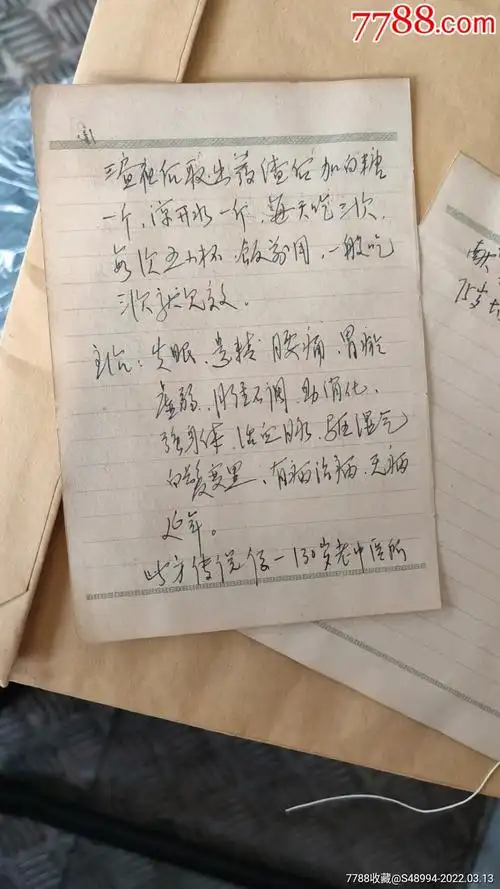 7788.com
三宿 取出药渣后加白糖
一斤,凉开水一斤,每天吃三次,
每次五小杯 饭前用,一般吃
三次就见效。
主治:失眠、遗精 腰痛,胃
虚弱、月经不调、助消化,
强身体,治 脉,驱湿气
白发变黑,有病治病,无病
延年。
此方传说 一130岁老中医所
献
75岁
7788收藏@S48994-2022.03.13